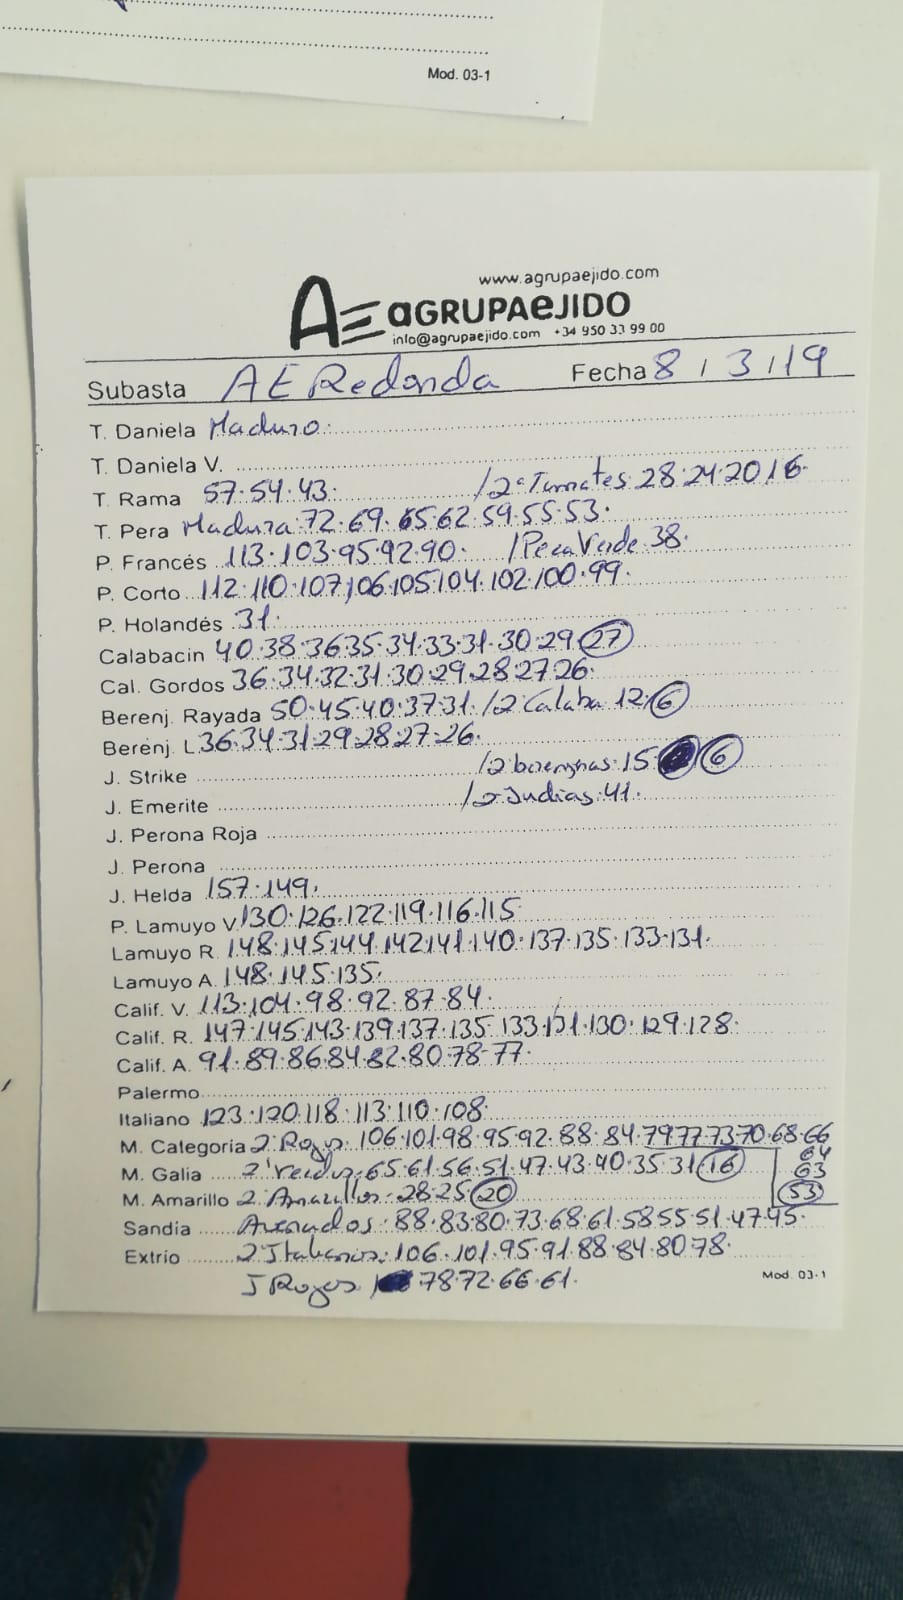 Mod. 03-1
www.agrupaejido.com
AE aGRUPAeJIDO
info@agrupaejido.com +34 950 33 99 00
Subasta AE Redonda Fecha 8 / 3 / 19
T. Daniela Maduro:
T. Daniela V.
T. Rama 57.54.43. /2ª Tomates 28.24.20 16.
T. Pera Madura 72.69.65.62.59.55.53.
P. Francés 113.103.95.92.90. /Pera Verde 38.
P. Corto 112.110.107.106.105.104.102.100.99.
P. Holandés 31.
Calabacin 40.38.36.35.34.33.31.30.29.27
Cal. Gordos 36.34.32.31.30.29.28.27.26.
Berenj. Rayada 50.45.40.37.31. /2 Calaba 12.6
Berenj. L 36.34.31.29.28.27.26.
J. Strike /2 berengnas 15. 6
J. Emerite /2 Judias 41.
J. Perona Roja
J. Perona
J. Helda 157.149.
P. Lamuyo V 130.126.122.119.116.115
Lamuyo R. 148.145.144.142.141.140.137.135.133.131.
Lamuyo A. 148.145.135.
Calif. V. 113.104.98.92.87.84.
Calif. R. 147.145.143.139.137.135.133.131.130.129.128.
Calif. A. 91.89.86.84.82.80.78.77.
Palermo
Italiano 123.120.118.113.110.108.
M. Categoria 2 Rojos 106.101.98.95.92.88.84.79.77.73.70.68.66
64
M. Galia 2 Verdes 65.61.56.51.47.43.40.35.31.16 63
M. Amarillo 2 Amarillos 28.25.20 53
Sandia Asurados: 88.83.80.73.68.61.58.55.51.47.45.
Extrio 2 Italianos: 106.101.95.91.88.84.80.78.
J Rojos 78.72.66.61.
Mod. 03-1